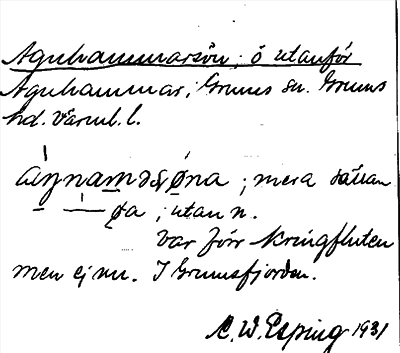 Agnhammarsön; ö utanför
Agnhammar i Grums sn. Grums
hd. Värml. l.
; mera sällan
; utan n.
var förr kringfluten
men ej nu. I Grumsfjorden.
C. W. Esping 1931